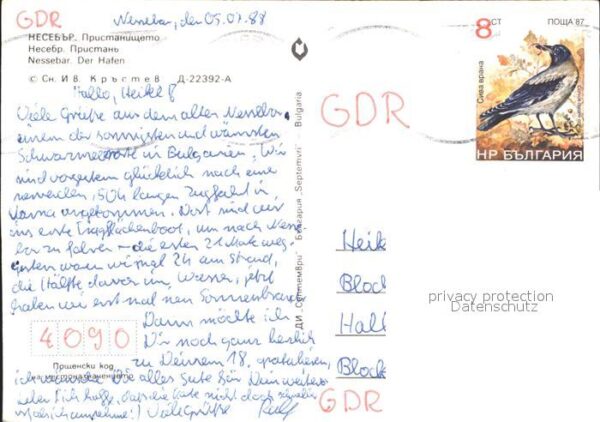 GDR
Nessebar, den 05.07.88
НЕСЕБЪР. Пристанището
Несебр. Пристань
Nessebar. Der Hafen
© Сн. Ив. Кръстев Д-22392-А
Hallo, Heike!
Viele Grüße aus dem alten Nessebar,
einem der sonnigsten und wärmsten
Schwarzmeerorte in Bulgarien. Wir
sind vorgestern glücklich nach einer
nervenden, 50h langen Zugfahrt in
Varna angekommen. Dort sind wir
ins erste Tragflächenboot, um nach Nesse-
bar zu fahren – die ersten 21 Mark weg.
Gestern waren wir 2h am Strand,
die Hälfte davon im Wasser, jetzt
haben wir erst mal nen Sonnenbrand.
Dann möchte ich
Dir noch ganz herzlich
zu Deinem 18. gratulieren,
ich wünsche Dir alles Gute für Dein weiteres
Leben
Viele Grüße Ralf
4090
Пощенски код
на местоназначението
ДИ „Септември" България „Septemvri" Bulgaria
GDR
8 СТ
ПОЩА '87
Сива врана
НР БЪЛГАРИЯ
Heik
Bloc
Hall
Block
GDR
privacy protection
Datenschutz